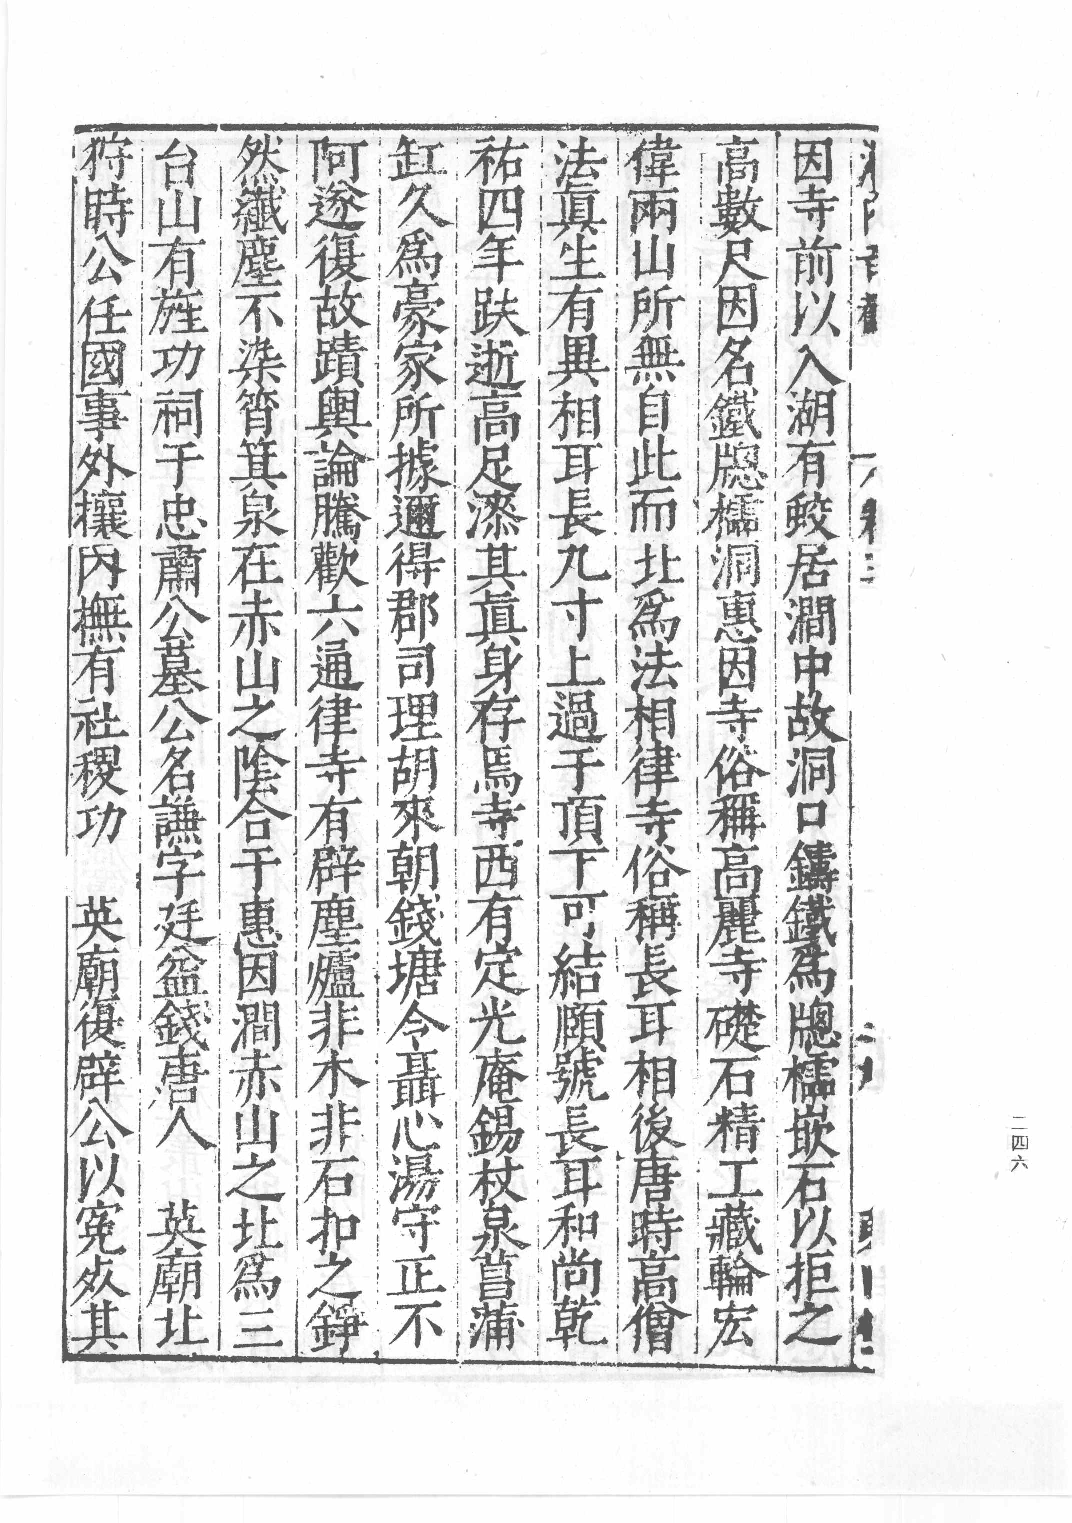 因寺前以入湖有蛟居澗中故洞口鑄鐵爲牕櫺嵌石以拒之
高數尺因名鐵牕櫺洞惠因寺俗稱高麗寺礎石精工藏輪宏
偉兩山所無自此而北爲法相律寺俗稱長耳相後唐時高僧
法眞生有異相耳長九寸上過于頂下可結頤號長耳和尚乾
祐四年趺逝高足漆其眞身存焉寺西有定光庵錫杖泉菖蒲
缸久爲豪家所據邇得郡司理胡來朝錢塘令聶心湯守正不
阿遂復故蹟輿論騰歡六通律寺有辟塵爐非木非石扣之錚
然纖塵不染筲箕泉在赤山之陰合于惠因澗赤山之北爲三
台山有旌功祠于忠肅公墓公名謙字廷益錢唐人　英廟北
狩時公任國事外攘內撫有社稷功　英廟復辟公以冤死其
二四六